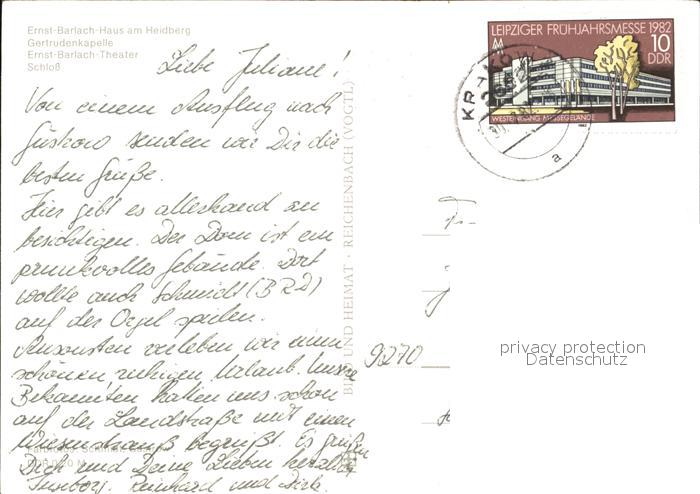 Ernst-Barlach-Haus am Heidberg
Gertrudenkapelle
Ernst-Barlach-Theater
Schloß
Liebe Juliane!
Von einem Ausflug nach
Güstrow senden wir Dir die
besten Grüße.
Hier gibt es allerhand zu
besichtigen. Der Dom ist ein
prunkvolles Gebäude. Dort
wollte auch Schmidt (BRD)
auf der Orgel spielen.
Ansonsten verleben wir einen
schönen ruhigen Urlaub. Unsere
Bekannten hatten uns schon
auf der Landstraße mit einem
Wiesenstrauß begrüßt. Es grüßen
Dich und Deine Lieben herzlich
Reinhard und Dirk.
BILD UND HEIMAT · REICHENBACH (VOGTL)
LEIPZIGER FRÜHJAHRSMESSE 1982
10
DDR
WESTEINGANG MESSEGELÄNDE
1982
KRAKOW
a
9270
privacy protection
Datenschutz